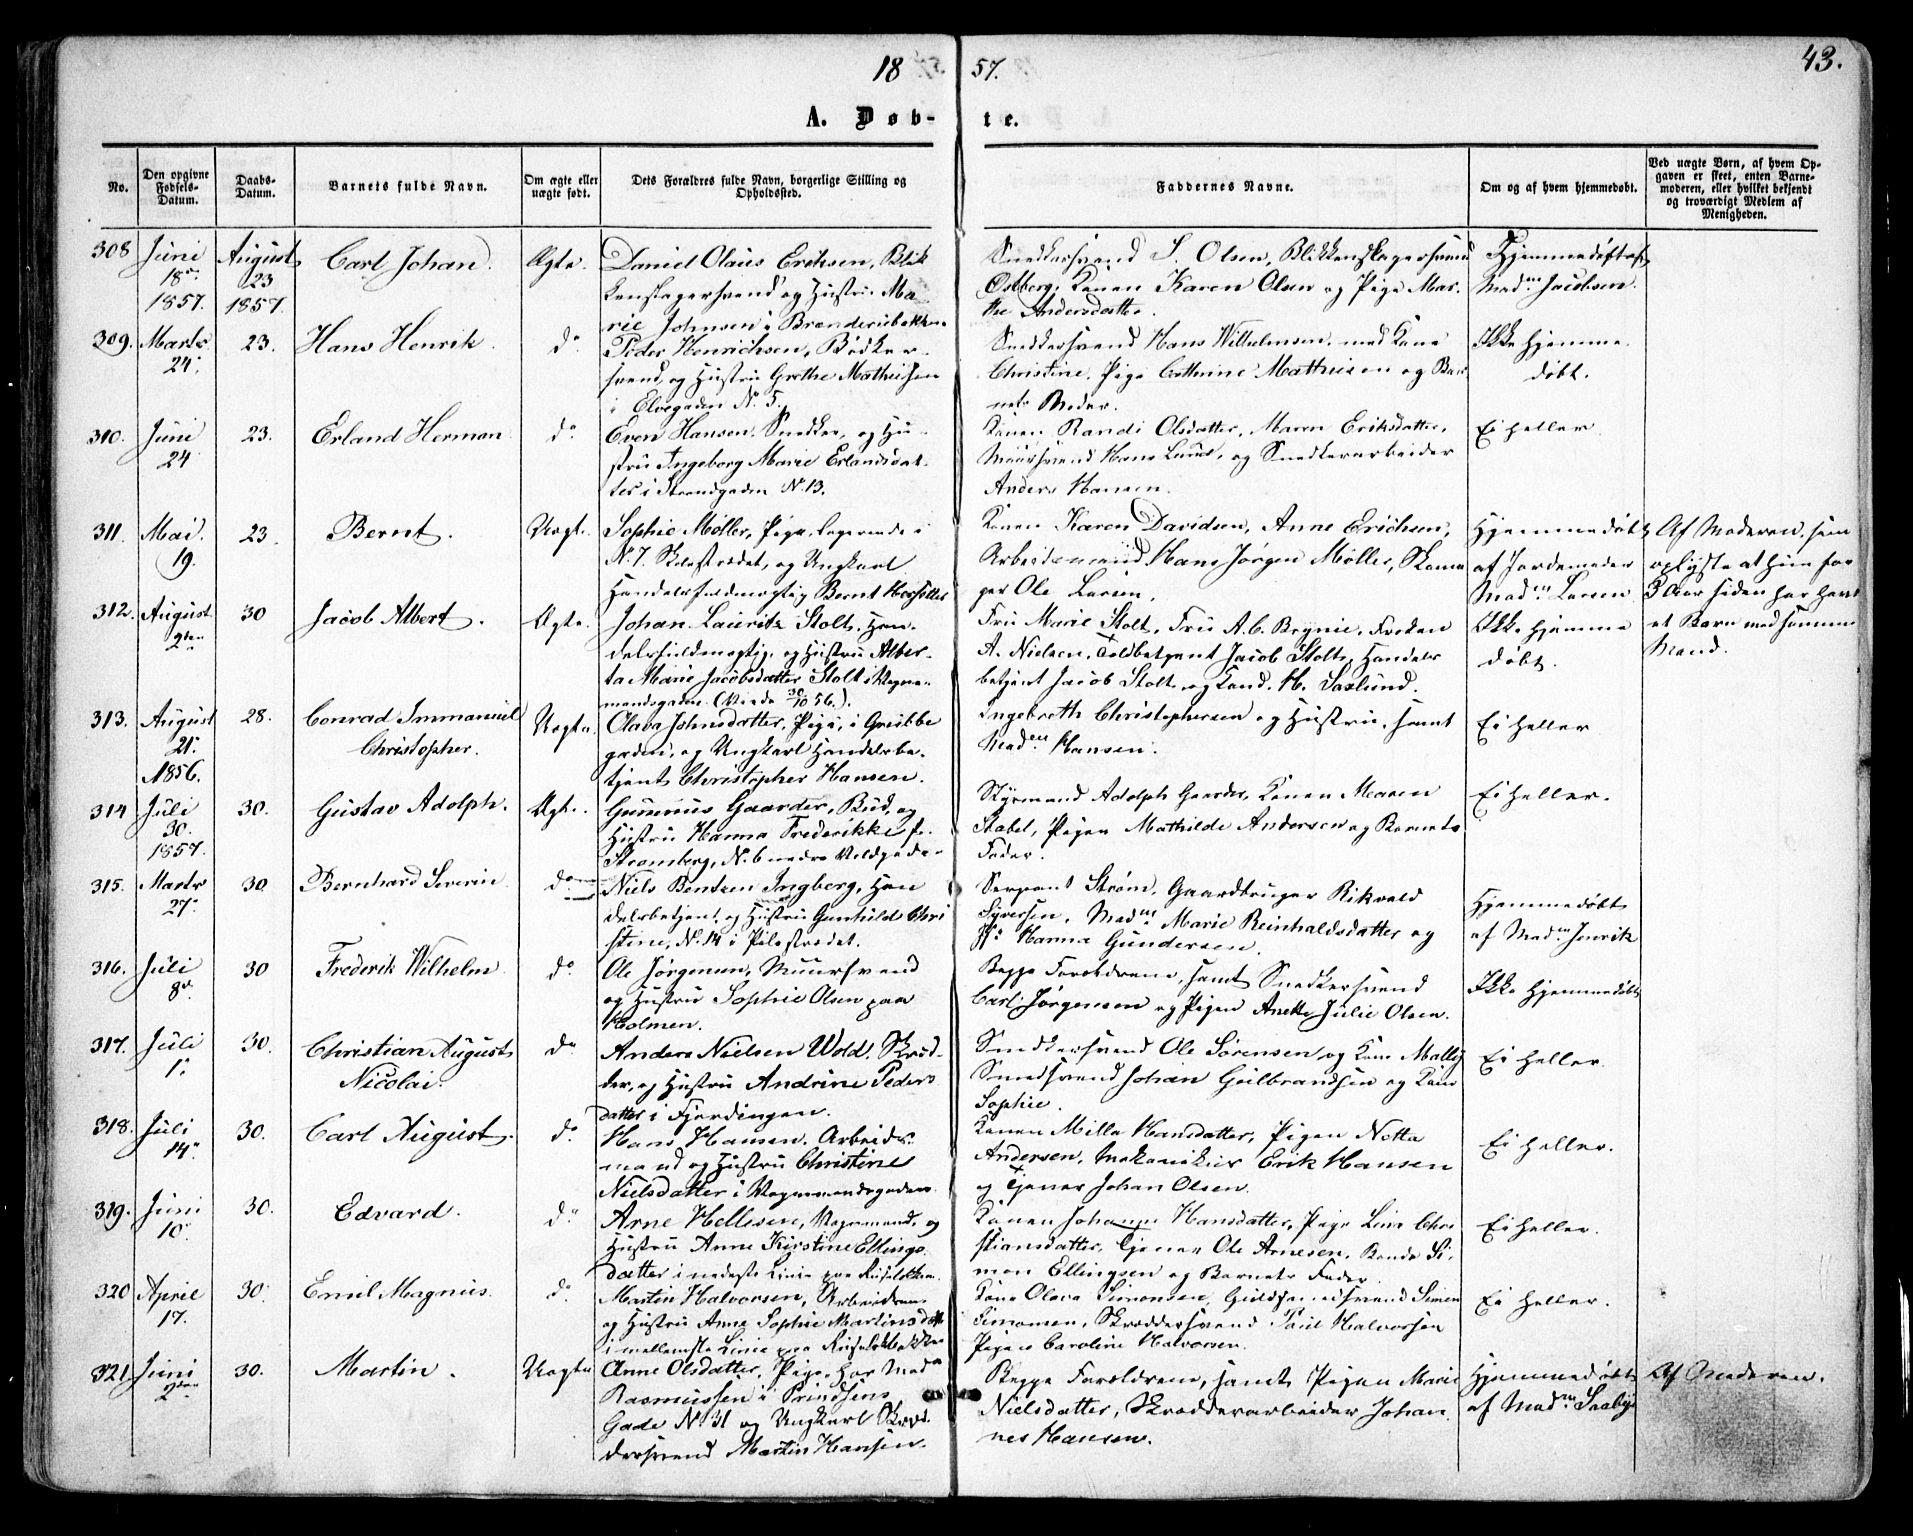 18 57. 43.
A. Døb- te.
No.
Den opgivne Fødsels-Datum.
Daabs-Datum.
Barnets fulde Navn.
Om ægte eller uægte født.
Dets Forældres fulde Navn, borgerlige Stilling og Opholdssted.
Faddernes Navne.
Om og af hvem hjemmedøbt.
Ved uægte Børn, af hvem Opgaven er skeet, enten Barnemoderen, eller hvilket bekjendt og troværdigt Medlem af Menigheden.
308 Juni 18de 1857. August 23 1857. Carl Johan. Ægte.
Daniel Olaus Eriksen, Blik
kenslagersvend og Hustru Ma-
rie Johnsen i
Snedkersvend S. Olsen, Blikkenslagersvend
Østberg, Konen Karen Olsen og Pige Mar-
the Andersdatter.
Hjemmedøbt af
Madm Jacobsen.
309. Marts 24. 23. Hans Henrik. do
Peder Henrichsen, Bødker-
svend, og Hustru Grethe Mathisen
i Elvegaden No 5.
Snedkersvend Hans Wilhelmsen med Kone
Christine, Pige Cathrine Mathisen og Bar-
nets Moder.
Ikke hjemme-
døbt.
310. Juni 24 23. Erland Herman do
Even Hansen, Snedker, og Hu-
stru Ingeborg Marie Erlandsdat-
ter i Strandgaden No 13.
Konen Randi Olsdatter, Maren Eriksdatter,
Muursvend Hans Lund, og Snedkerarbeider
Anders Hansen.
Ei heller
311. Mai. 19. 23. Bernt. Uægte.
Sophie Møller, Pige, logerende i
No 7. og Ungkarl
Handelsfuldmægtig Bernt
Konen Karen Davidsen, Anne Erichsen,
Arbeidsmand Hans Jørgen Møller,
Ole Larsen.
Hjemmedøbt
af Jordemoder
Madm Larsen
Af Moderen, som
oplyste at hun for
3 Aar siden har havt
et Barn med samme
Mand.
312. August 2den 30 Jacob Albert. Ægte.
Johan Lauritz Stolt, Han-
delsfuldmægtig, og Hustru Alber-
ta Marie Jacobsdatter Stolt i Vogn-
mandsgaden. (Viede 30/10 56.).
Fru Marie Stolt, Fru A. C. Brynie, Frøken
A. Nielsen, Toldbetjent Jacob Stolt, Handels-
betjent Jacob Stolt og Cand. H. Saxlund.
Ikke hjemme
døbt.
313. August 21. 1856. 28. Conrad Immanuel Christopher. Uægte.
Olava Johnsdatter, Pige, i Grubbe
gaden, og Ungkarl Handelsbe-
tjent Christopher Hansen.
Ingebreth Christophersen og Hustru, samt
Madm Hansen.
Ei heller
314 Juli 30. 1857. 30. Gustav Adolph. Ægte.
Gunerius Gaarder, Bud, og
Hustru Hanna Frederikke f.
Stromberg, No. 6 nedre Voldgade.
Styrmand Adolph Gaarder, Konen Maren
Stabel, Pigen Mathilde Andersen og Barnets
Fader.
Ei heller.
315. Marts 27. 30. Bernhard Severin do
Niels Bentzen Ingberg, Han
delsbetjent, og Hustru Gunhild Chri
stine, No. 14 i Pilestrædet.
Sergeant Strøm, Gaardbruger Rikvald
Syversen, Madm Marie Reinholdsdatter og
Hanna Gundersen.
Hjemmedøbt
af Madm
316. Juli 8de 30 Frederik Wilhelm do
Ole Jørgensen, Muursvend
og Hustru Sophie Olsen paa
Holmen.
Begge Forældrene, samt Snedkersvend
Carl Jørgensen og Pigen Anette Julie Olsen.
Ikke hjemmedøbt
317. Juli 1. 30. Christian August Nicolai. do
Anders Nielsen Wold, Skræd-
der, og Hustru Andrine Peders
datter i Fjerdingen.
Smeddersvend Ole Sørensen og Kone Mally
Smedsvend Johan Gulbrandsen og Kone
Sophie.
Ei heller.
318. Juli 14. 30. Carl August. do
Hans Hansen, Arbeids-
mand og Hustru Christine
Nielsdatter i Vognmandsgaden.
Konen Milla Hansdatter, Pigen Netta
Andersen, Mekanikus Erik Hansen
og Tjener Johan Olsen.
Ei heller.
319. Juni 10. 30. Edvard. do
Arne Hellesen, Vognmand, og
Hustru Anne Kirstine Ellings-
datter i nederste Linie paa
Konen Johanne Hansdatter, Pige Lina Chri
stiansdatter, Tjener Ole Arnesen, Bonde Si-
mon Ellingsen og Barnets Fader.
Ei heller.
320 April 17. 30. Emil Magnus. do
Martin Halvorsen, Arbeidsm.
og Hustru Anne Sophie Martinsdatt.
i mellemste Linie paa
Kone Olava Simonsen, Guldsmedsvend Simen
Simonsen, Skræddersvend Paul Halvorsen
Pigen Caroline Halvorsen.
Ei heller.
321. Juni 2den 30. Martin. Uægte
Anne Olsdatter, Pige, hos Mad.
Rasmussen i Prindsens
Gade No 31 og Ungkarl Skræd-
dersvend Martin Hansen.
Begge Forældrene, samt Pigen Marie
Nielsdatter, Skrædderarbeider Johan-
nes Hansen.
Hjemmedøbt
af Madm Saaby
Af Moderen.